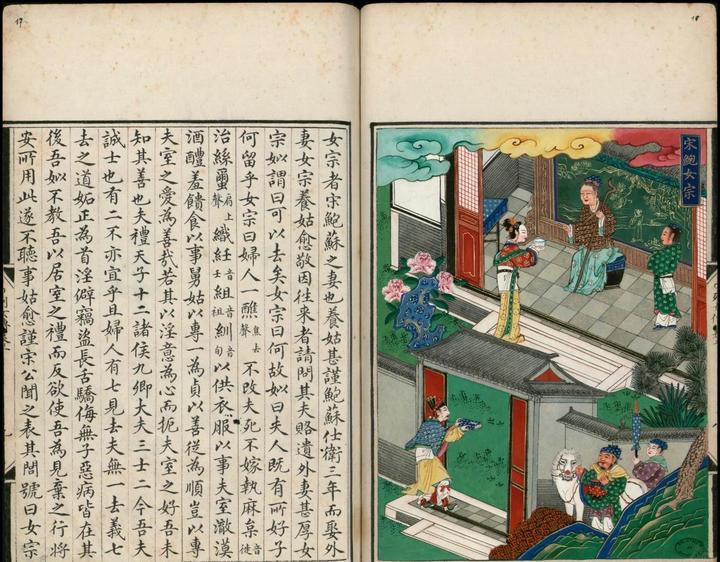 18
宋鮑女宗
17
女宗者宋鮑蘇之妻也養姑甚謹鮑蘇仕衛三年而娶外
妻女宗養姑愈敬因往來者請問其夫賂遺外妻甚厚女
宗姒謂曰可以去矣女宗曰何故姒曰夫人既有所好子
何留乎女宗曰婦人一醮焦去聲不改夫死不嫁執麻枲音徙
治絲蠒肩上聲織紝音壬組音祖紃音旬以供衣服以事夫室澈漠
酒醴羞饋食以事舅姑以專一為貞以善從為順豈以專
夫室之愛為善哉若其以淫意為心而扼夫室之好吾未
知其善也夫禮天子十二諸侯九卿大夫三士二今吾夫
誠士也有二不亦宜乎且婦人有七見去夫無一去義七
去之道妬正為首淫僻竊盜長舌驕侮無子惡病皆在其
後吾姒不教吾以居室之禮而反欲使吾為見棄之行將
安所用此遂不聽事姑愈謹宗公聞之表其閭號曰女宗